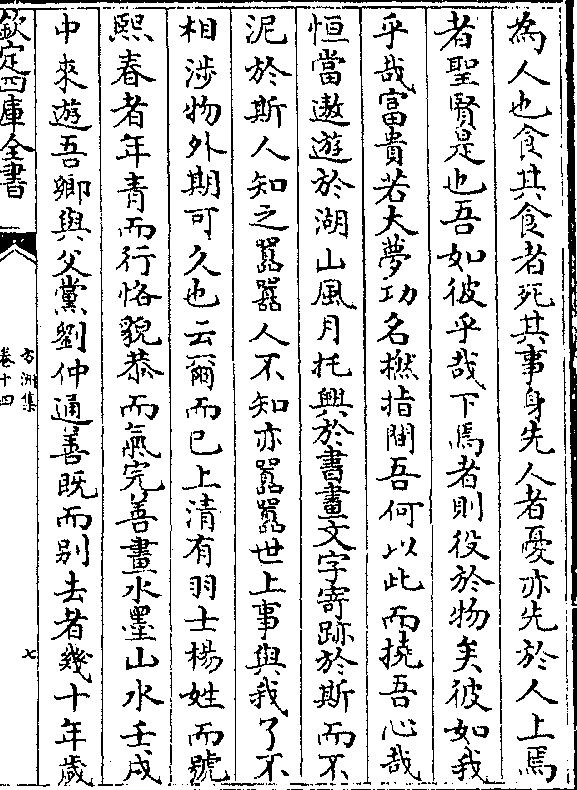 為人也食其食者死其事身先人者憂亦先於人上焉
者聖賢是也吾如彼乎哉下焉者則役於物矣彼如我
乎哉富貴若大夢功名撚指間吾何以此而撓吾心哉
恒當遨遊於湖山風月托興於書畫文字寄跡於斯而不
泥於斯人知之嚣嚣人不知亦嚣嚣世上事與我了不
相涉物外期可久也云爾而已上清有羽士楊姓而號
熙春者年青而行恪貌恭而氣完善畫水墨山水壬戌
中來遊吾鄉與父黨劉仲通善既而别去者幾十年歳
欽定四庫全書
方洲集
卷十四
七